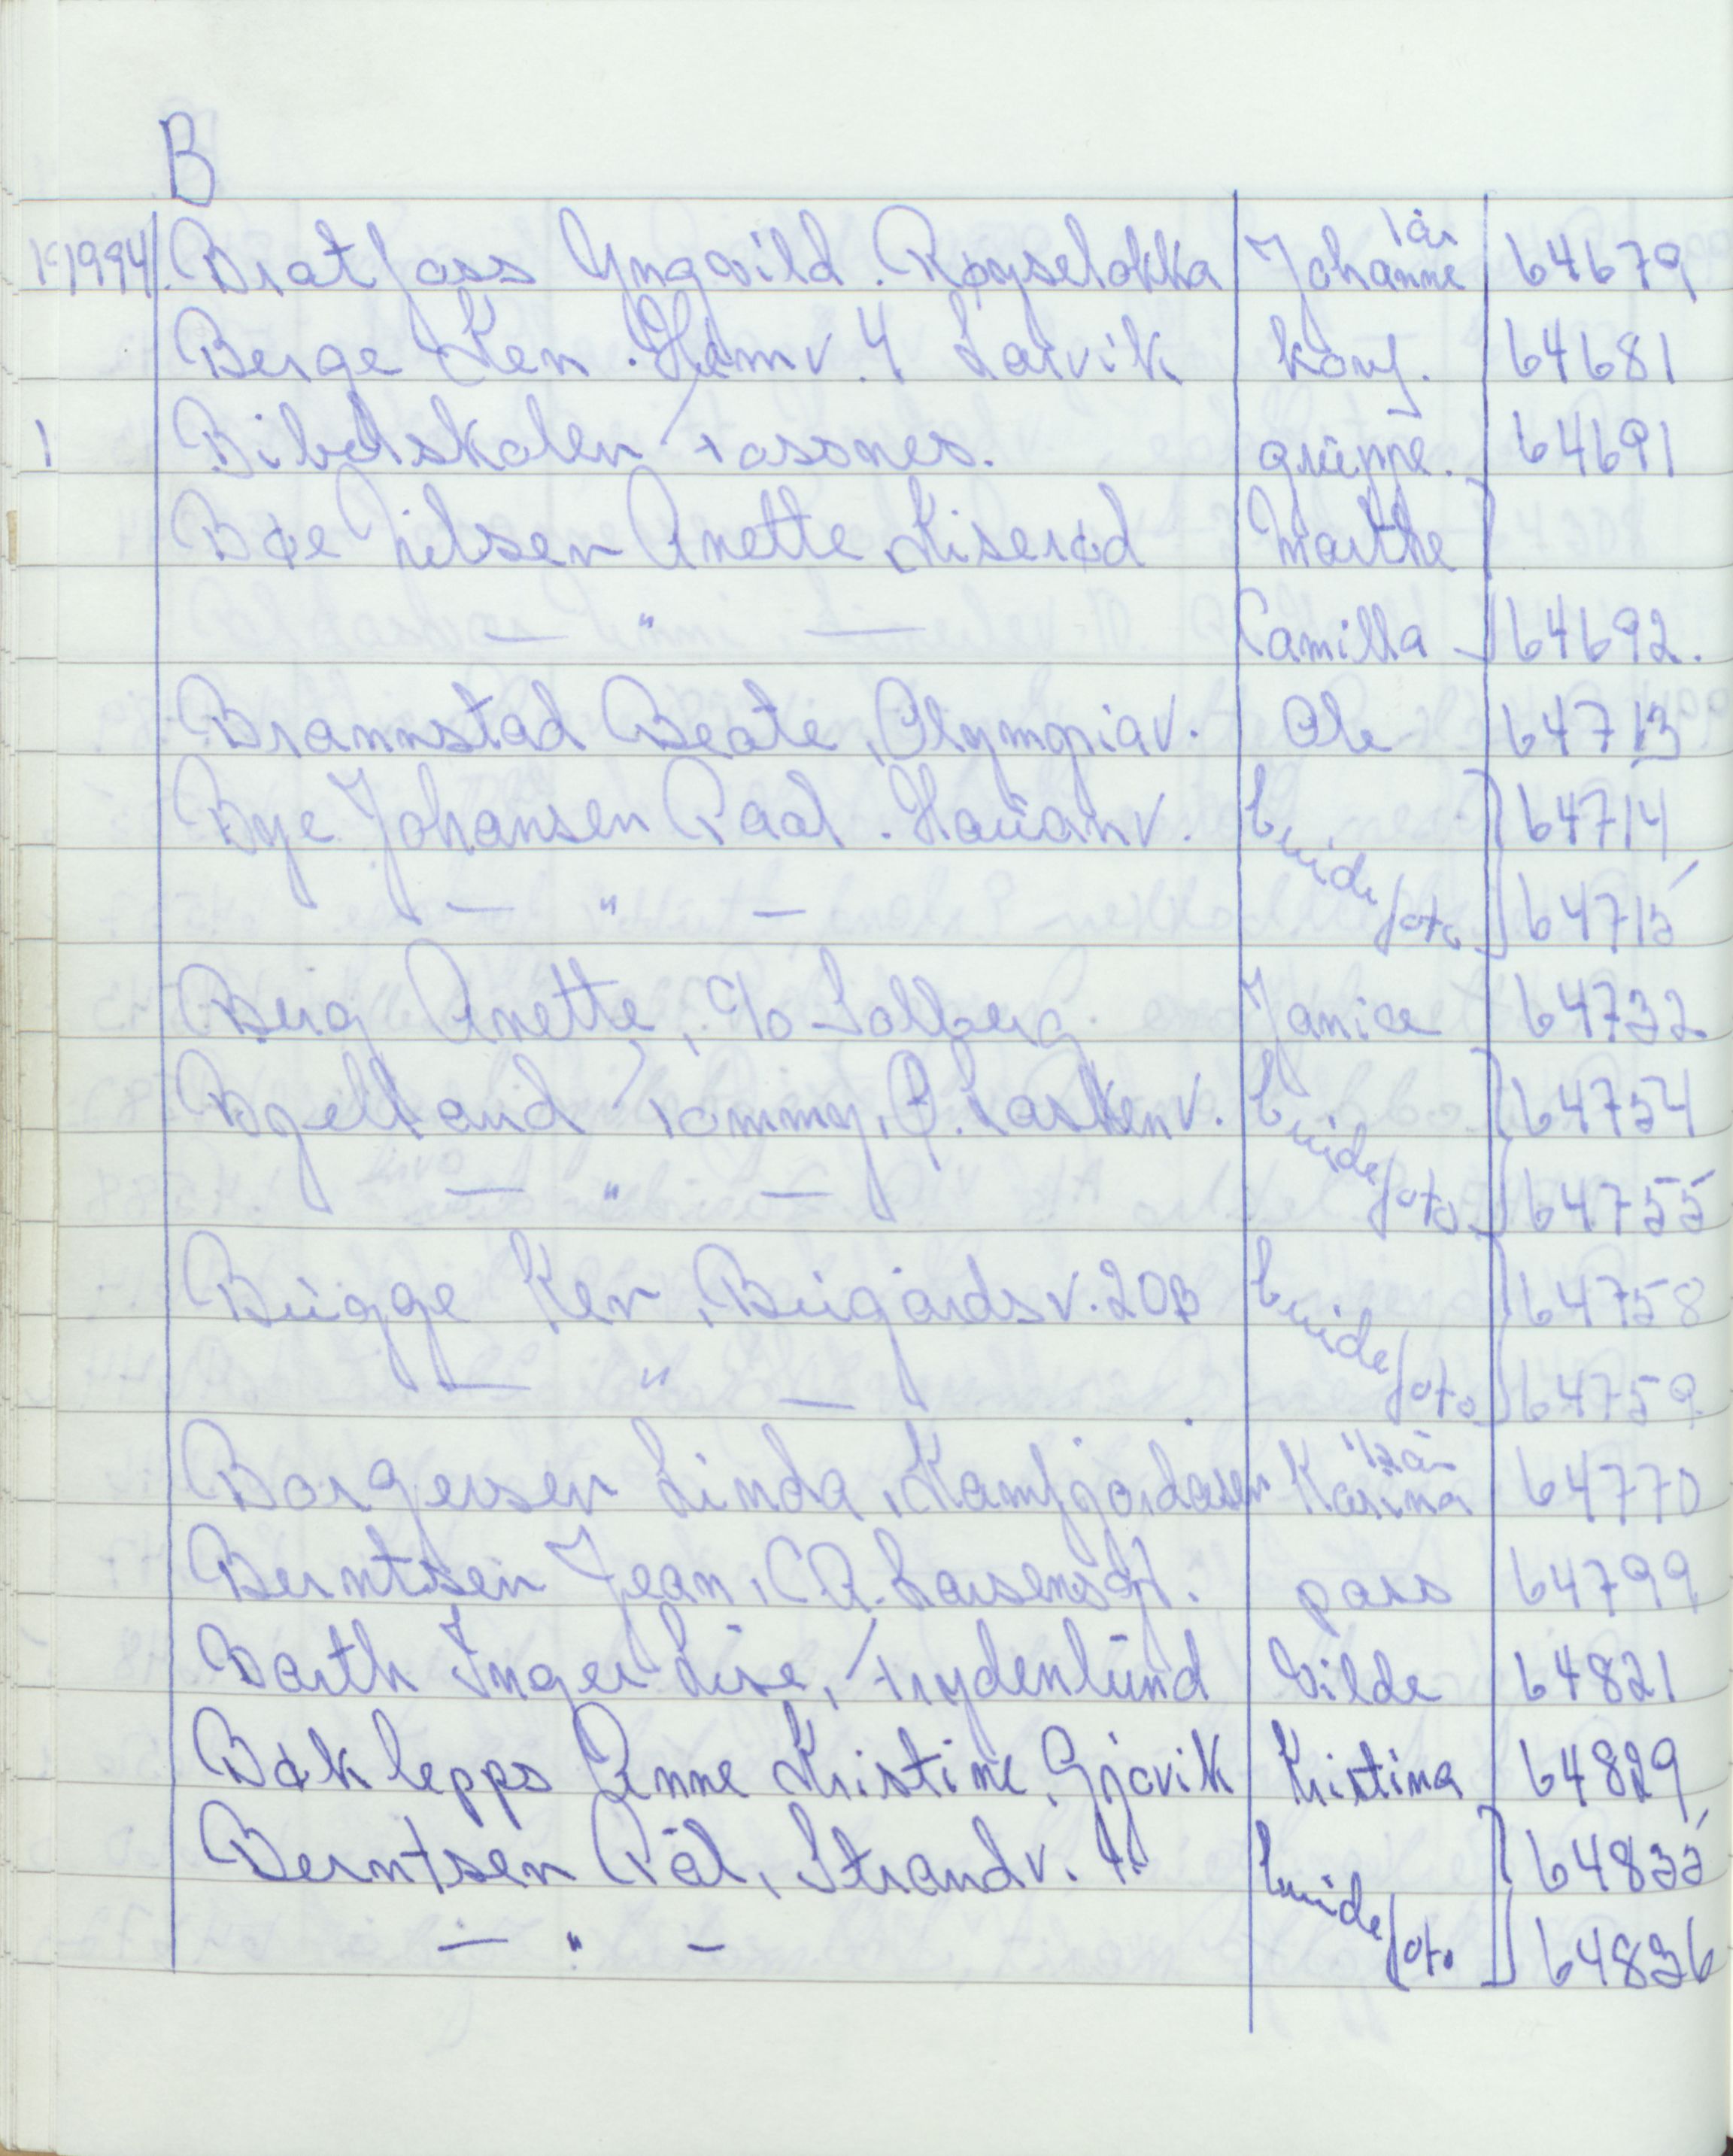 B
1-1994 Bratfoss Yngvild. Røyseløkka Johanne 1 år 64679
Berge Ken. Hamv. 4 Larvik konf. 64681
1 Bibelskolen Fossnes. gruppe. 64691
Bøe Nilsen Anette, Kiserød Marthe
— " — Camilla 64692.
Brannstad Beate, Olympiav. Ole 64713
Bye Johansen Paal. Hauanv. brude 64714
— " — foto 64715
Berg Anette, c/o Solberg Janice 64732
Bjelland Tommy, P. Laskenv. brude 64754
— " — foto 64755
Bugge Ken, Bugårdsv. 20B brude 64758
— " — foto 64759
Borgersen Linda, Kamfjordåsen Karina 1/2 år 64770
Berntsen Jean, C.A. Larsensgt. pass 64799
Barth Inger Lise, Frydenlund Vilde 64821
Bøklepps Anne Kristine, Gjøvik Kristina 64829
Berntsen Pål, Strandv. brude 64835
— " — foto 64836